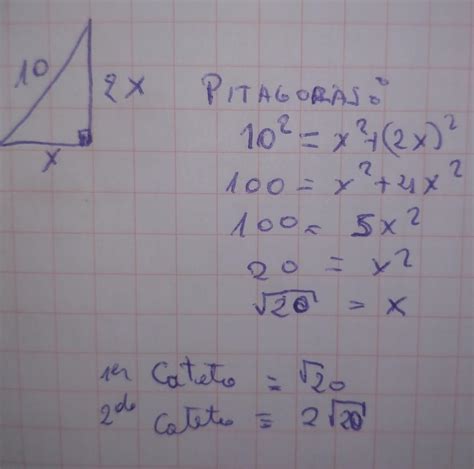 10
2x
x
PITAGORAS:
10² = x²+(2x)²
100 = x²+4x²
100 = 5x²
20 = x²
√20 = x
1er Cateto = √20
2do Cateto = 2√20